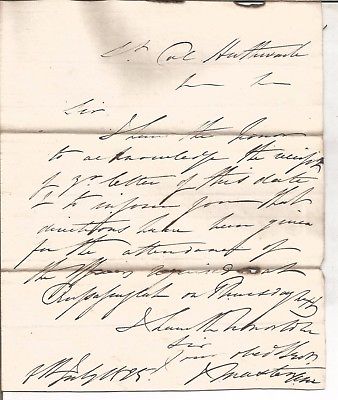 Lt Col
Sir
I have the honor
to acknowledge the receipt
of yr letter of this date
& to inform you that
directions have been given
for the attendance of
the officers at
on Thursday next
I have the honor to be
Sir
Your obed Servt
July 1825